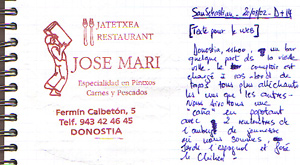 JATETXEA
RESTAURANT
JOSE MARI
Especialidad en Pintxos
Carnes y Pescados
Fermín Calbetón, 5
Telf. 943 42 46 45
DONOSTIA
San Sebastian - D+14
[Texte pour le web]
Donostia, un bar
quelque part de la vieille
ville. Le comptoir est
chargé à de
tapas tous plus alléchants
les uns que les autres.
Nous une
"caña" en
avec 2 de
l'auberge de jeunesse
où nous sommes, 
l'espagnol et José
le Chilien